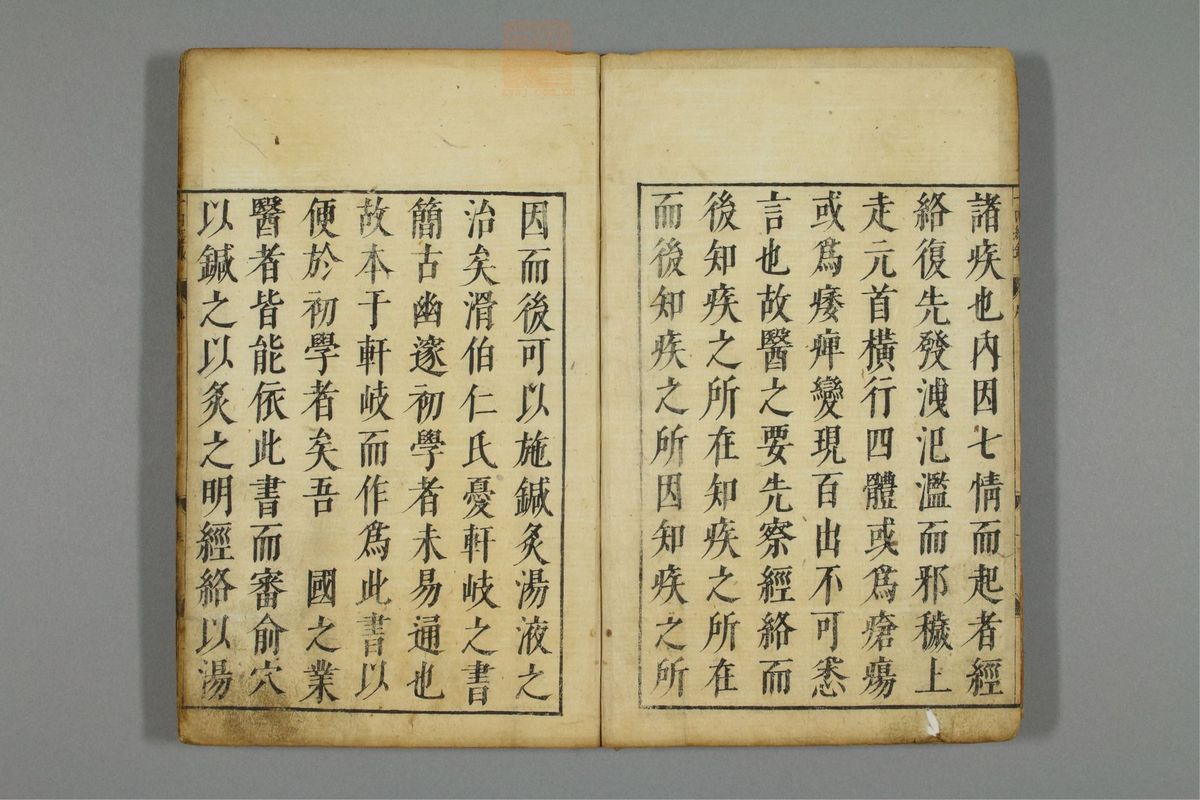 諸疾也內因七情而起者經
絡復先發洩氾濫而邪穢上
走元首橫行四體或爲瘡瘍
或爲痿痺變現百出不可悉
言也故醫之要先察經絡而
後知疾之所在知疾之所在
而後知疾之所因知疾之所
因而後可以施鍼灸湯液之
治矣滑伯仁氏憂軒岐之書
簡古幽邃初學者未易通也
故本于軒岐而作爲此書以
便於初學者矣吾　國之業
醫者皆能依此書而審俞穴
以鍼之以灸之明經絡以湯